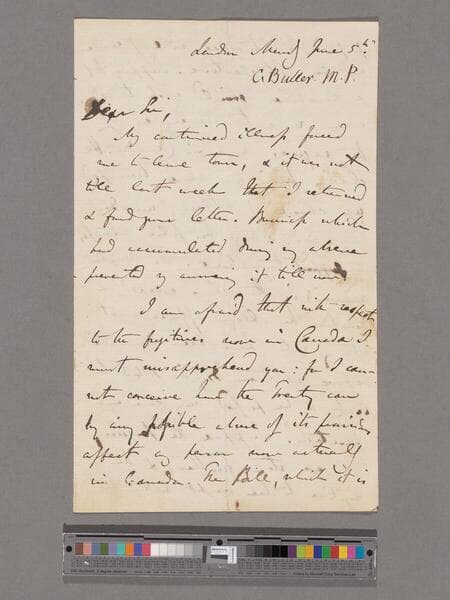 London Monday June 5th
C. Buller M.P.
Dear Sir,
My continued illness forced
me to leave town, & it was not
till last week that I returned
& found your letter. Business which
had accumulated during my absence
prevented my answering it till now.
I am afraid that with respect
to the fugitives now in Canada I
must misapprehend you: for I can-
not conceive how the Treaty can
by any possible abuse of its provisions
affect any person now actually
in Canada. The Bill, which it is